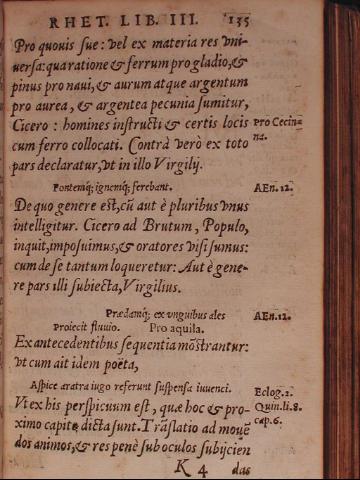 RHET. LIB. III. 135
Pro quouis sue: vel ex materia res vni-
uersa: qua ratione & ferrum pro gladio, &
pinus pro naui, & aurum atque argentum
pro aurea, & argentea pecunia sumitur,
Cicero: homines instructi & certis locis
pro Cecin-
na.
cum ferro collocati. Contrà verò ex toto
pars declaratur, vt in illo Virgilij.
Fontemq́; ignemq́; ferebant.
AEn. 12.
De quo genere est, cũ aut è pluribus vnus
intelligitur. Cicero ad Brutum, Populo,
inquit, imposuimus, & oratores visi sumus:
cum de se tantum loqueretur: Aut è gene-
re pars illi subiecta, Virgilius.
Prædamq́; ex vnguibus ales
AEn. 12.
Proiecit fluuio. Pro aquila.
Ex antecedentibus sequentia mõstrantur:
vt cum ait idem poëta,
Aspice aratra iugo referunt suspensa iuuenci.
Eclog. 2.
Vt ex his perspicuum est, quæ hoc & pro-
Quin. li. 8.
cap. 6.
ximo capite dicta sunt. Trãslatio ad mouẽ
dos animos, & res penè sub oculos subijcien
K 4 das